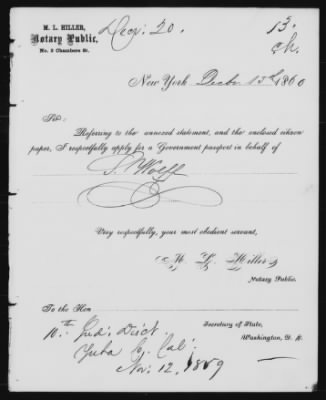 M. L. HILLER,
Notary Public,
No. 3 Chambers St.
Decr: 20.
13.
ch.
New York Decbr 13th 1860
Sir:
Referring to the annexed statement, and the enclosed citizen
paper, I respectfully apply for a Government passport in behalf of
S. Wolff
Very respectfully, your most obedient servant,
M. L. Hiller
Notary Public.
To the Hon
Secretary of State,
Washington, D. C.
10.th Jud: Dist.
Yuba Co, Cal:
Nov: 12, 1859